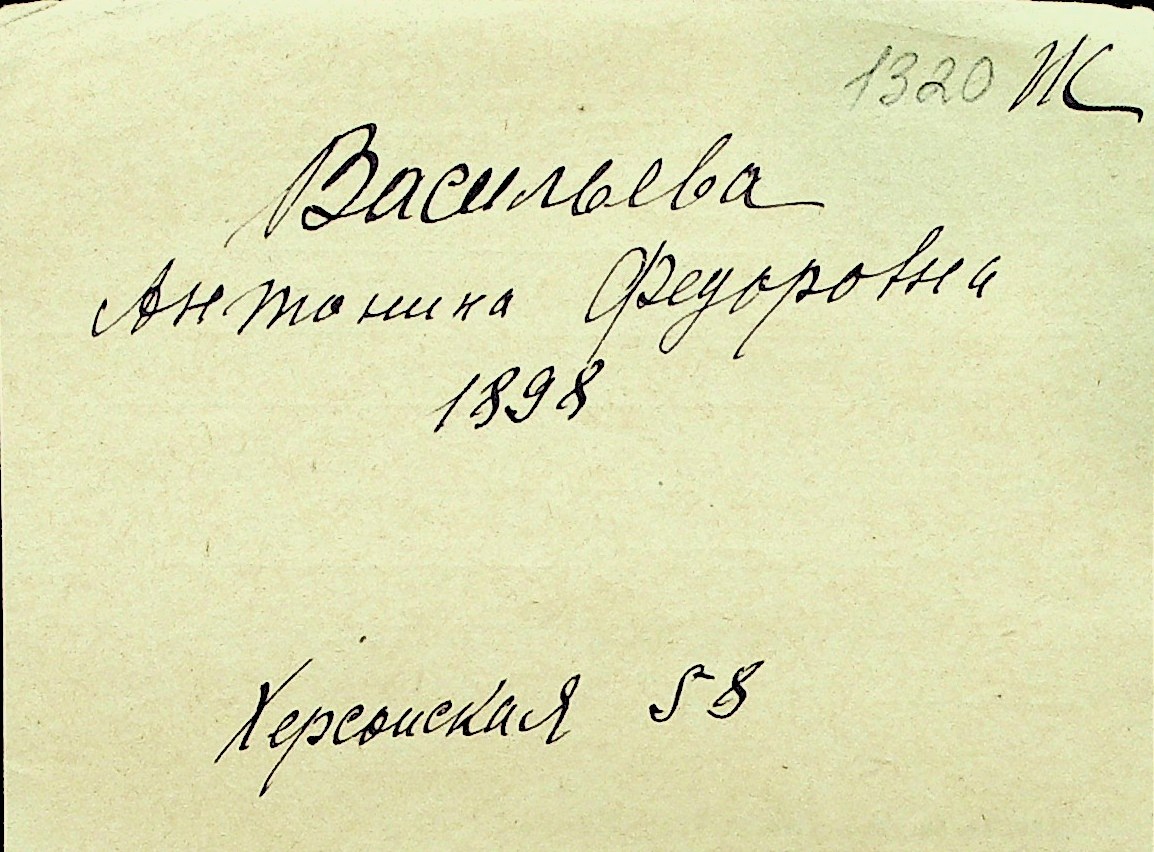 1320 Ж
Васильева
Антонина Федоровна
1898
Херсонская 58